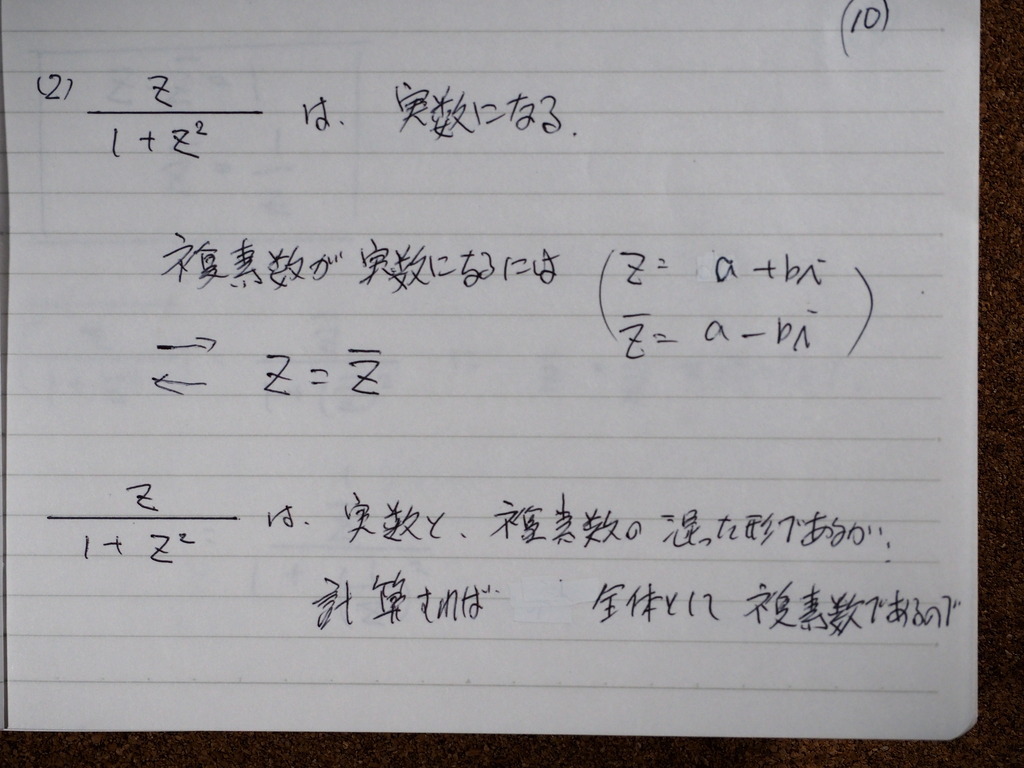 (10)
(2) z / (1 + z²) は、実数になる.
複素数が実数になるには ( z = a + bi
z̄ = a - bi )
⇄ z = z̄
z / (1 + z²) は、実数と、複素数の混った形であるが、
計算すれば 全体として複素数であるので